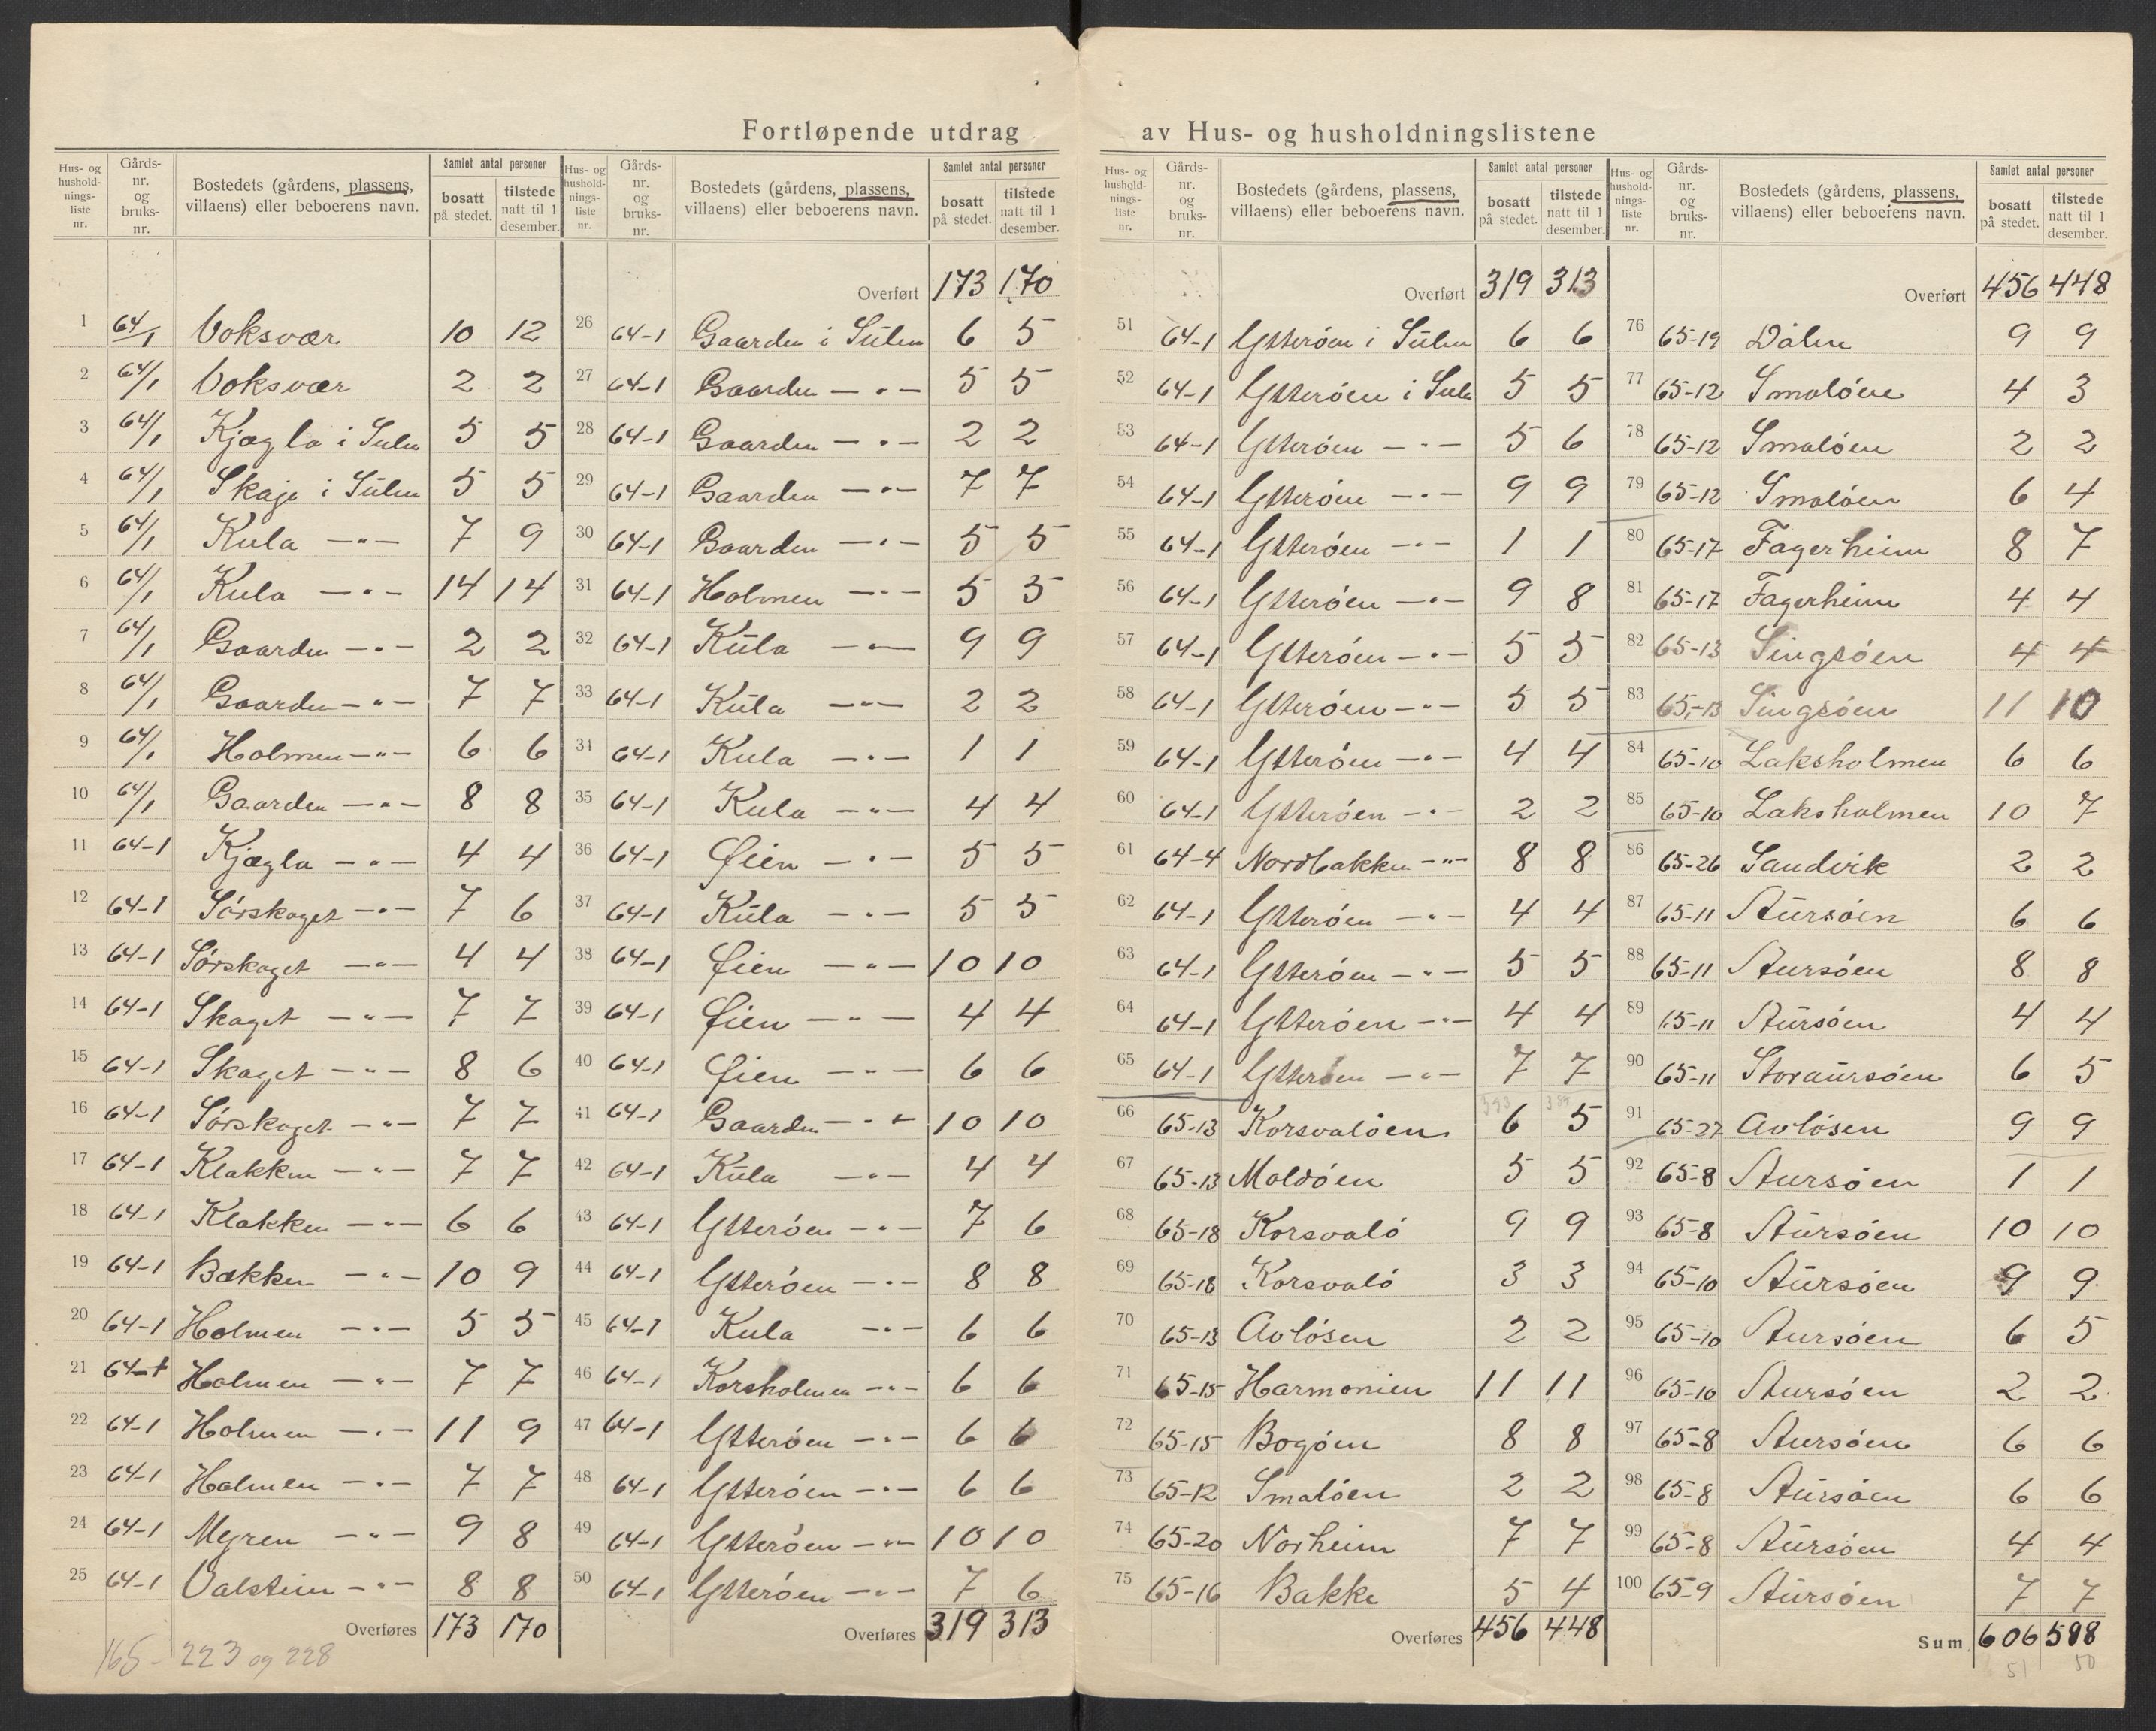 Fortløpende utdrag av Hus- og husholdningslistene
Hus- og husholdningsliste nr. Gårds-nr. og bruks-nr. Bostedets (gårdens, plassens, villaens) eller beboerens navn. Samlet antal personer bosatt på stedet. tilstede natt til 1 desember.
1 64/1 Voksvær 10 12
2 64/1 Voksvær 2 2
3 64/1 Kjægla i Sulen 5 5
4 64/1 Skaje i Sulen 5 5
5 64/1 Kula —"— 7 9
6 64/1 Kula —"— 14 14
7 64/1 Gaarden —"— 2 2
8 64/1 Gaarden —"— 7 7
9 64/1 Holmen —"— 6 6
10 64/1 Gaarden —"— 8 8
11 64-1 Kjægla —"— 4 4
12 64-1 Sørskaget —"— 7 6
13 64-1 Sørskaget —"— 4 4
14 64-1 Skaget —"— 7 7
15 64-1 Skaget —"— 8 6
16 64-1 Sørskaget —"— 7 7
17 64-1 Klakken —"— 7 7
18 64-1 Klakken —"— 6 6
19 64-1 Bakken —"— 10 9
20 64-1 Holmen —"— 5 5
21 64-1 Holmen —"— 7 7
22 64-1 Holmen —"— 11 9
23 64-1 Holmen —"— 7 7
24 64-1 Myren —"— 9 8
25 64-1 Valstein —"— 8 8
Overføres 173 170
165 - 223 og 228
Hus- og husholdningsliste nr. Gårds-nr. og bruks-nr. Bostedets (gårdens, plassens, villaens) eller beboerens navn. Samlet antal personer bosatt på stedet. tilstede natt til 1 desember.
Overført 173 170
26 64-1 Gaarden i Sulen 6 5
27 64-1 Gaarden —"— 5 5
28 64-1 Gaarden —"— 2 2
29 64-1 Gaarden —"— 7 7
30 64-1 Gaarden —"— 5 5
31 64-1 Holmen —"— 5 5
32 64-1 Kula —"— 9 9
33 64-1 Kula —"— 2 2
34 64-1 Kula —"— 1 1
35 64-1 Kula —"— 4 4
36 64-1 Øien —"— 5 5
37 64-1 Kula —"— 5 5
38 64-1 Øien —"— 10 10
39 64-1 Øien —"— 4 4
40 64-1 Øien —"— 6 6
41 64-1 Gaarden —"— 10 10
42 64-1 Kula —"— 4 4
43 64-1 Ytterøen —"— 7 6
44 64-1 Ytterøen —"— 8 8
45 64-1 Kula —"— 6 6
46 64-1 Korsholmen —"— 6 6
47 64-1 Ytterøen —"— 6 6
48 64-1 Ytterøen —"— 6 6
49 64-1 Ytterøen —"— 10 10
50 64-1 Ytterøen —"— 7 6
Overføres 319 313
Hus- og husholdningsliste nr. Gårds-nr. og bruks-nr. Bostedets (gårdens, plassens, villaens) eller beboerens navn. Samlet antal personer bosatt på stedet. tilstede natt til 1 desember.
Overført 319 313
51 64-1 Ytterøen i Sulen 6 6
52 64-1 Ytterøen i Sulen 5 5
53 64-1 Ytterøen —"— 5 6
54 64-1 Ytterøen —"— 9 9
55 64-1 Ytterøen —"— 1 1
56 64-1 Ytterøen —"— 9 8
57 64-1 Ytterøen —"— 5 5
58 64-1 Ytterøen —"— 5 5
59 64-1 Ytterøen —"— 4 4
60 64-1 Ytterøen —"— 2 2
61 64-4 Nordbakken —"— 8 8
62 64-1 Ytterøen —"— 4 4
63 64-1 Ytterøen —"— 5 5
64 64-1 Ytterøen —"— 4 4
65 64-1 Ytterøen —"— 7 7
66 65-13 Korsvaløen 6 5
67 65-13 Moldøen 5 5
68 65-18 Korsvalø 9 9
69 65-18 Korsvalø 3 3
70 65-13 Avløsen 2 2
71 65-15 Harmonien 11 11
72 65-15 Bogøen 8 8
73 65-12 Smaløen 2 2
74 65-20 Norheim 7 7
75 65-16 Bakke 5 4
Overføres 456 448
Hus- og husholdningsliste nr. Gårds-nr. og bruks-nr. Bostedets (gårdens, plassens, villaens) eller beboerens navn. Samlet antal personer bosatt på stedet. tilstede natt til 1 desember.
Overført 456 448
76 65-19 Dalen 9 9
77 65-12 Smaløen 4 3
78 65-12 Smaløen 2 2
79 65-12 Smaløen 6 4
80 65-17 Fagerheim 8 7
81 65-17 Fagerheim 4 4
82 65-13 Singsøen 4 4
83 65-13 Singsøen 11 10
84 65-10 Laksholmen 6 6
85 65-10 Laksholmen 10 7
86 65-26 Sandvik 2 2
87 65-11 Aursøen 6 6
88 65-11 Aursøen 8 8
89 65-11 Aursøen 4 4
90 65-11 Storaursøen 6 5
91 65-27 Avløsen 9 9
92 65-8 Aursøen 1 1
93 65-8 Aursøen 10 10
94 65-10 Aursøen 9 9
95 65-10 Aursøen 6 5
96 65-10 Aursøen 2 2
97 65-8 Aursøen 6 6
98 65-8 Aursøen 6 6
99 65-8 Aursøen 4 4
100 65-9 Aursøen 7 7
Sum 606 588
51 50